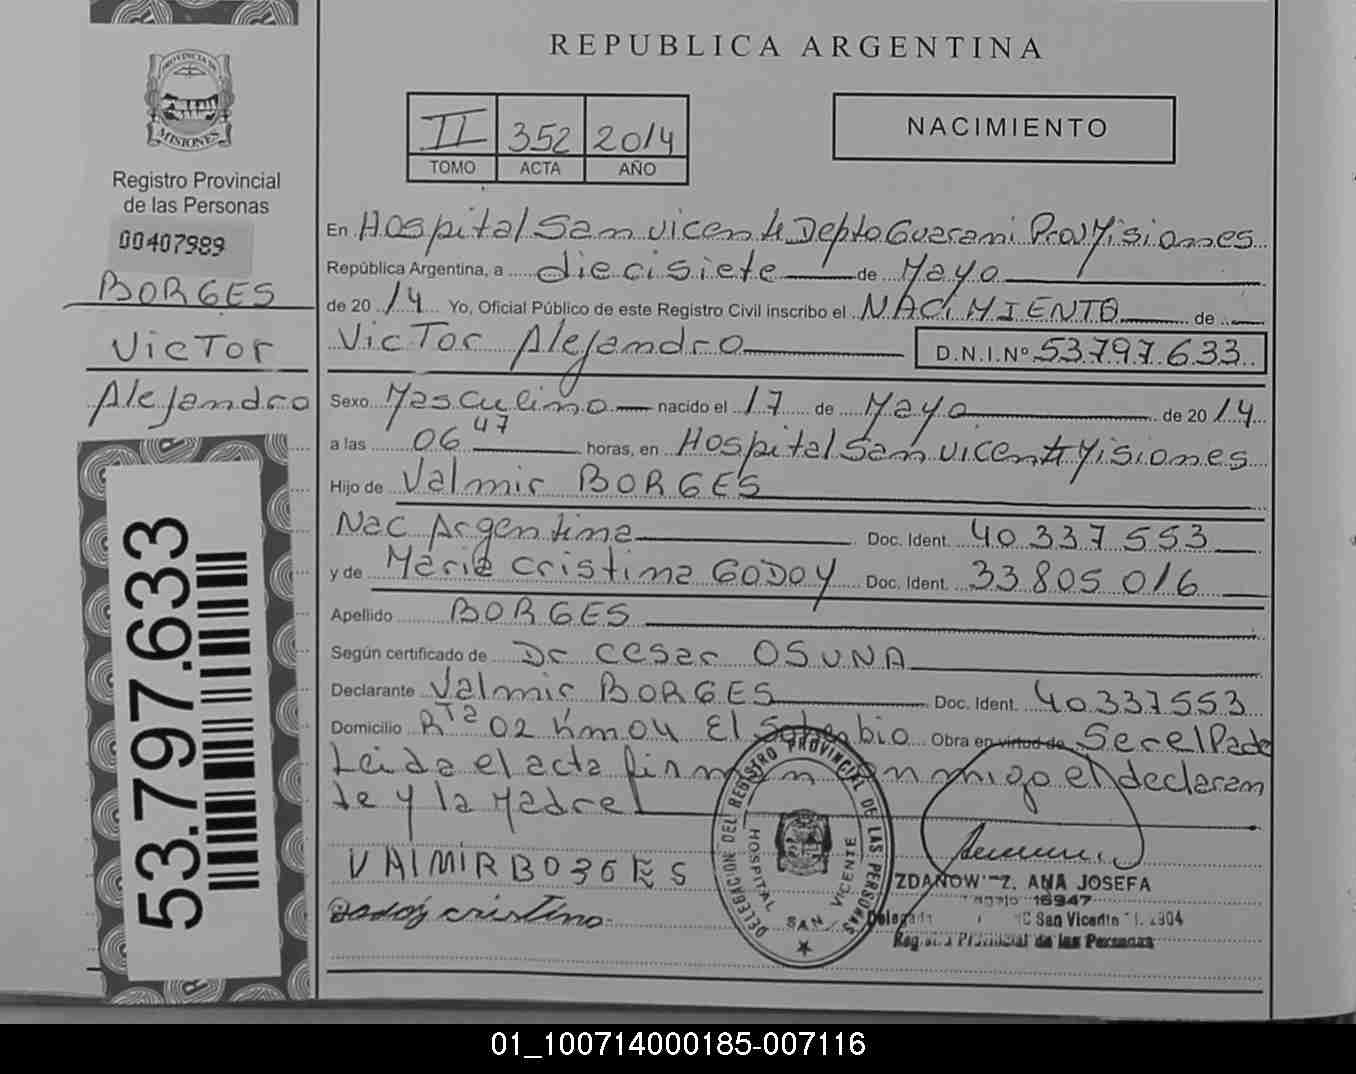 PROVINCIA DE
MISIONES
Registro Provincial
de las Personas
00407989
BORGES
Victor
Alejandro
53.797.633
REPUBLICA ARGENTINA
II 352 2014
TOMO ACTA AÑO
NACIMIENTO
En Hospital San vicente Depto Guarani Prov Misiones
República Argentina, a diecisiete de Mayo
de 20 14 Yo, Oficial Público de este Registro Civil inscribo el NACIMIENTO de
Victor Alejandro D.N.I.Nº 53.797.633
Sexo Masculino nacido el 17 de Mayo de 20 14
a las 06 47 horas, en Hospital San vicente Misiones
Hijo de Valmir BORGES
Nac Argentina Doc. Ident. 40 337 553
y de Maria Cristina GODOY Doc. Ident. 33 805 016
Apellido BORGES
Según certificado de Dr Cesar OSUNA
Declarante Valmir BORGES Doc. Ident. 40337553
Domicilio Rta 02 Km 04 El Soberbio Obra en virtud de Ser el Padre
Leida el acta firman conmigo el declaran
te y la Madre
VALMIR BORGES
Godoy cristina
DELEGACION DEL REGISTRO PROVINCIAL DE LAS PERSONAS
HOSPITAL SAN VICENTE
Z. ANA JOSEFA
16947
San Vicente
Registro Provincial de las Personas
01_100714000185-007116